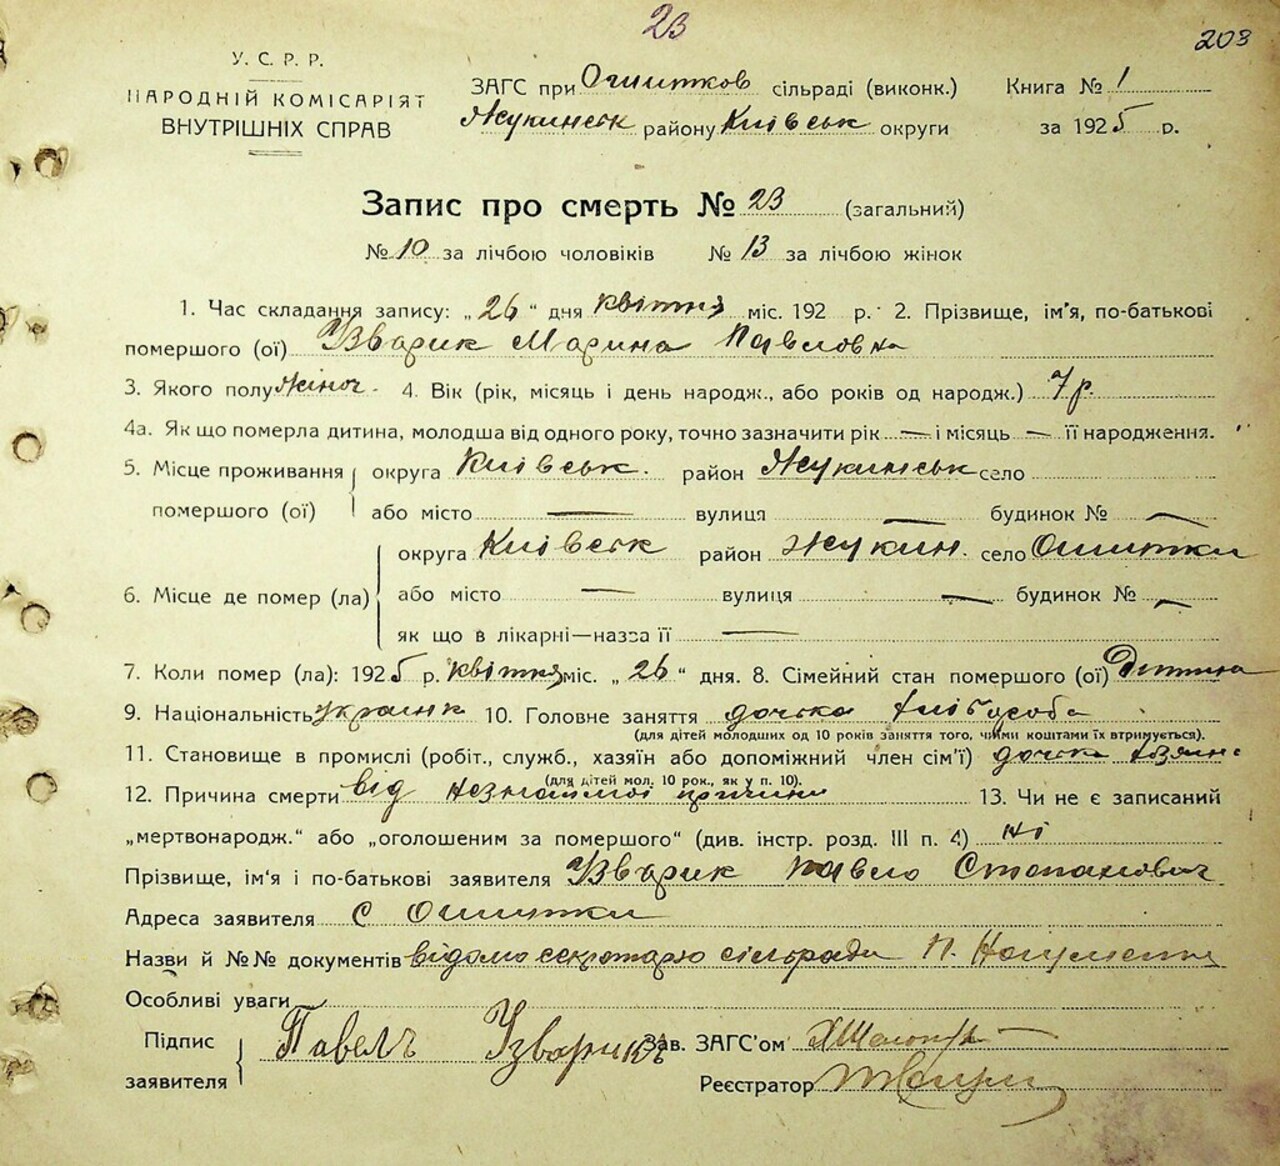 23
203
У. С. Р. Р.
НАРОДНІЙ КОМІСАРІЯТ
ВНУТРІШНІХ СПРАВ
ЗАГС при Ошитков сільраді (виконк.) Книга № 1
Жукинськ району Київськ округи за 1925 р.
Запис про смерть № 23 (загальний)
№ 10 за лічбою чоловіків № 13 за лічбою жінок
1. Час складання запису: „26“ дня квітня міс. 192 р. 2. Прізвище, ім'я, по-батькові
помершого (ої) Узварик Марина Павловна
3. Якого полу жіноч. 4. Вік (рік, місяць і день народж., або років од народж.) 7 р.
4а. Як що померла дитина, молодша від одного року, точно зазначити рік — і місяць — її народження.
5. Місце проживання помершого (ої) округа Київськ. район Жукинськ село
або місто — вулиця — будинок № —
6. Місце де помер (ла) округа Київськ район Жукин. село Ошитки
або місто — вулиця — будинок № —
як що в лікарні—назва її —
7. Коли помер (ла): 1925 р. квітня міс. „26“ дня. 8. Сімейний стан помершого (ої) Дитина
9. Національність українк 10. Головне заняття дочка хлібороба
(для дітей молодших од 10 років заняття того, чиїми коштами їх втримується).
11. Становище в промислі (робіт., служб., хазяїн або допоміжний член сім'ї) дочка хазяїна
(для дітей мол. 10 рок., як у п. 10).
12. Причина смерти від незнаімоі причини 13. Чи не є записаний
„мертвонародж.“ або „оголошеним за помершого“ (див. інстр. розд. III п. 4) ні
Прізвище, ім'я і по-батькові заявителя Узварик Павло Степанович
Адреса заявителя с Ошитки
Назви й №№ документів відомо секретарю сільради П. Науменко
Особливі уваги
Підпис заявителя Павелъ Узварикъ Зав. ЗАГС'ом
Реєстратор